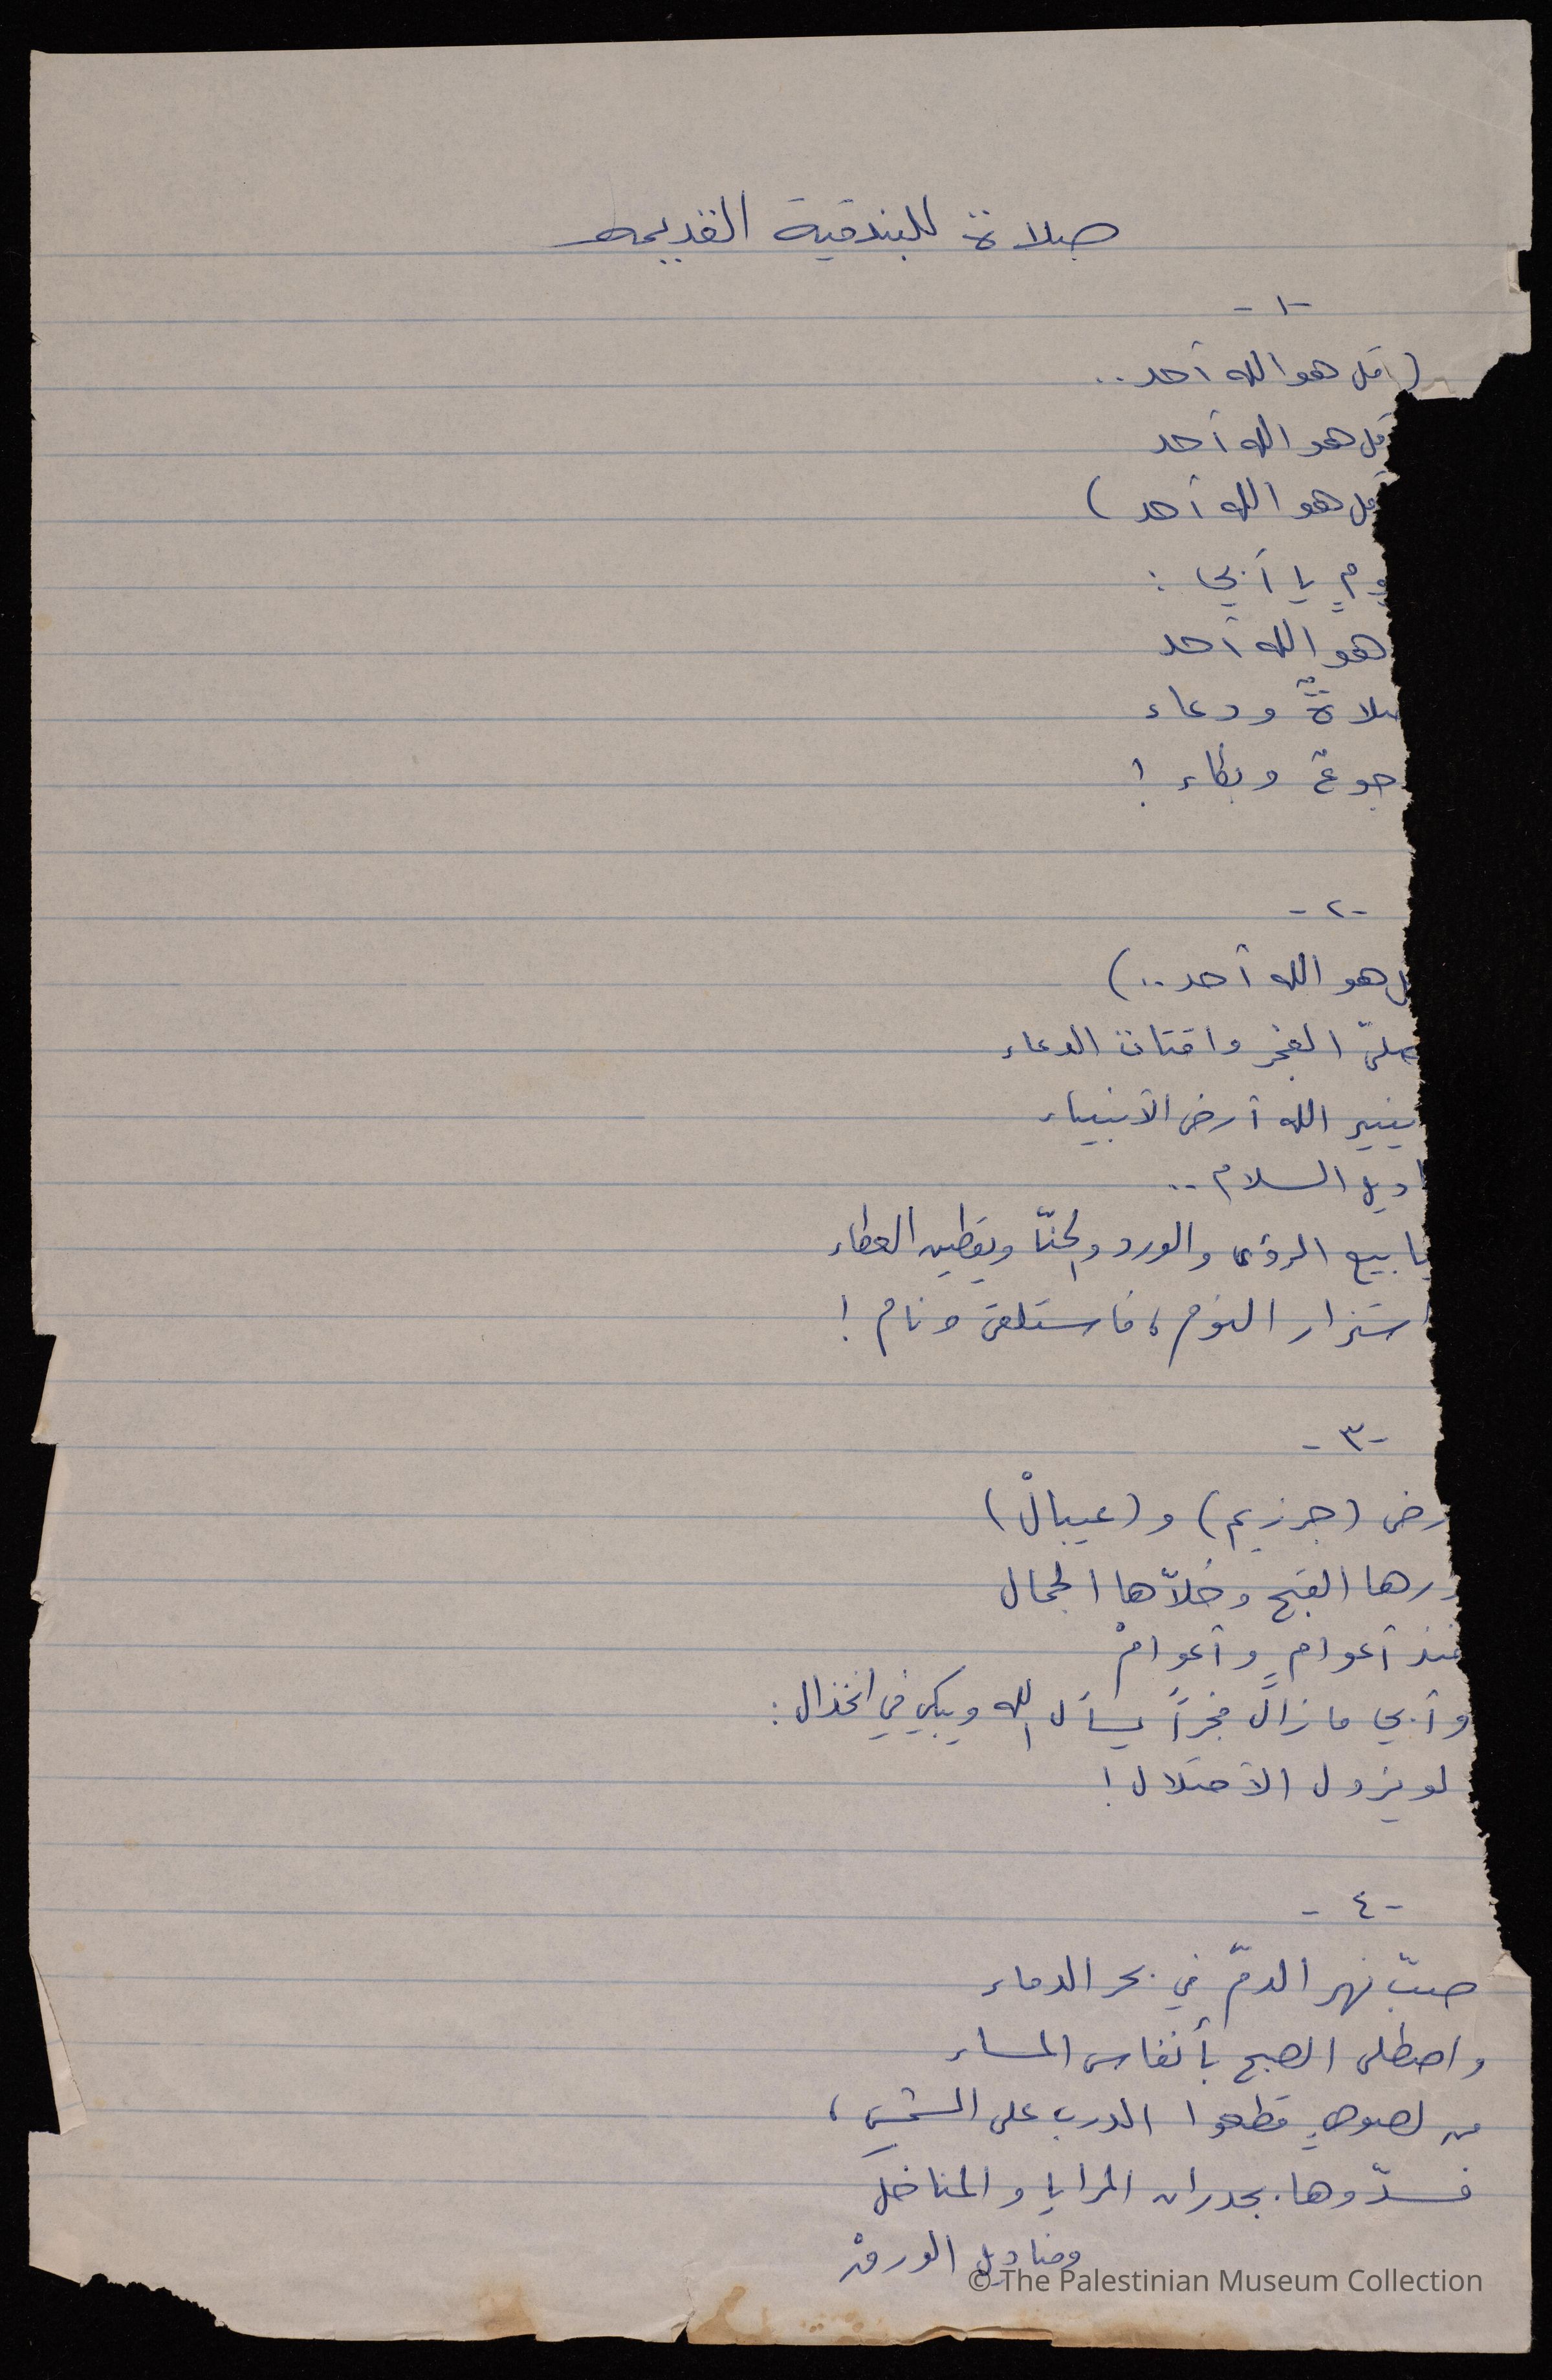 صلاة للبندقية القديمة
-١-
(قل هو الله أحد..
قل هو الله أحد
قل هو الله أحد)
ومٍ يا أبي :
هو الله أحد
صلاةٌ ودعاء
جوعٌ وبكاء !
-٢-
ل هو الله أحد..)
صلّى الفجر واقتات الدعاء
ينير الله أرض الأنبياء
اديل السلام..
نابيع الرؤى والورد والحنّا ويقطين العطاء
استزار النوم، فاستلقى ونام !
-٣-
رض (جرزيم) و (عيبالْ)
رها القبح وخلاّها الجمال
منذ أعوامٍ وأعوامْ
وأبي مازالَ فجراً يسأل الله ويبكي في انخذال :
لو يزول الاحتلال !
-٤-
صبّ نهر الدمّ في بحر الدماء
واصطلى الصبح بأنفاس المساء
من لصوصٍ قطعوا الدرب على الشمسِ،
فسدّوها بجدران المرايا والمناخل
ومناديل الورقْ
© The Palestinian Museum Collection